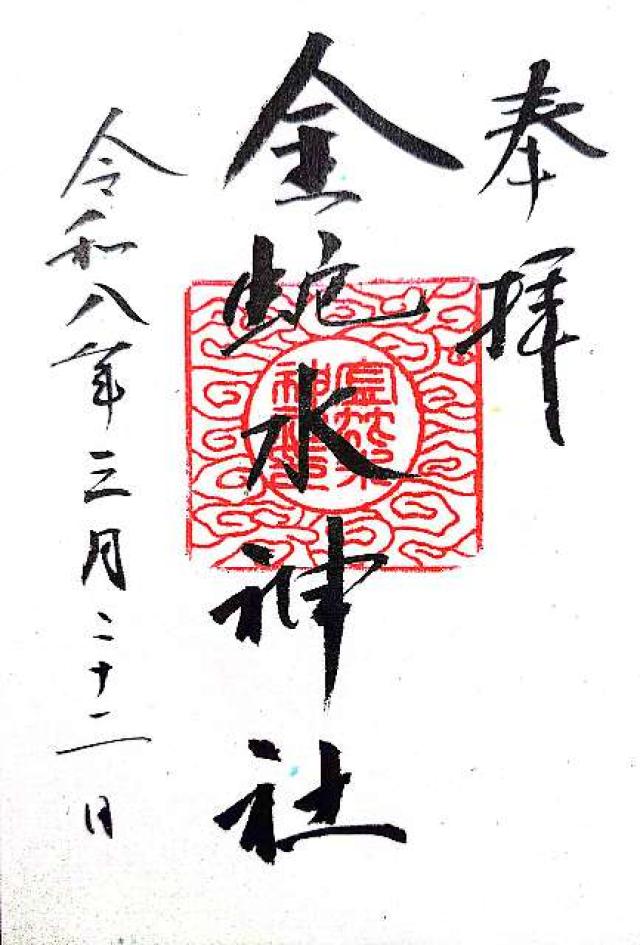 奉拝
金蛇水神社
令和八年三月二十二日